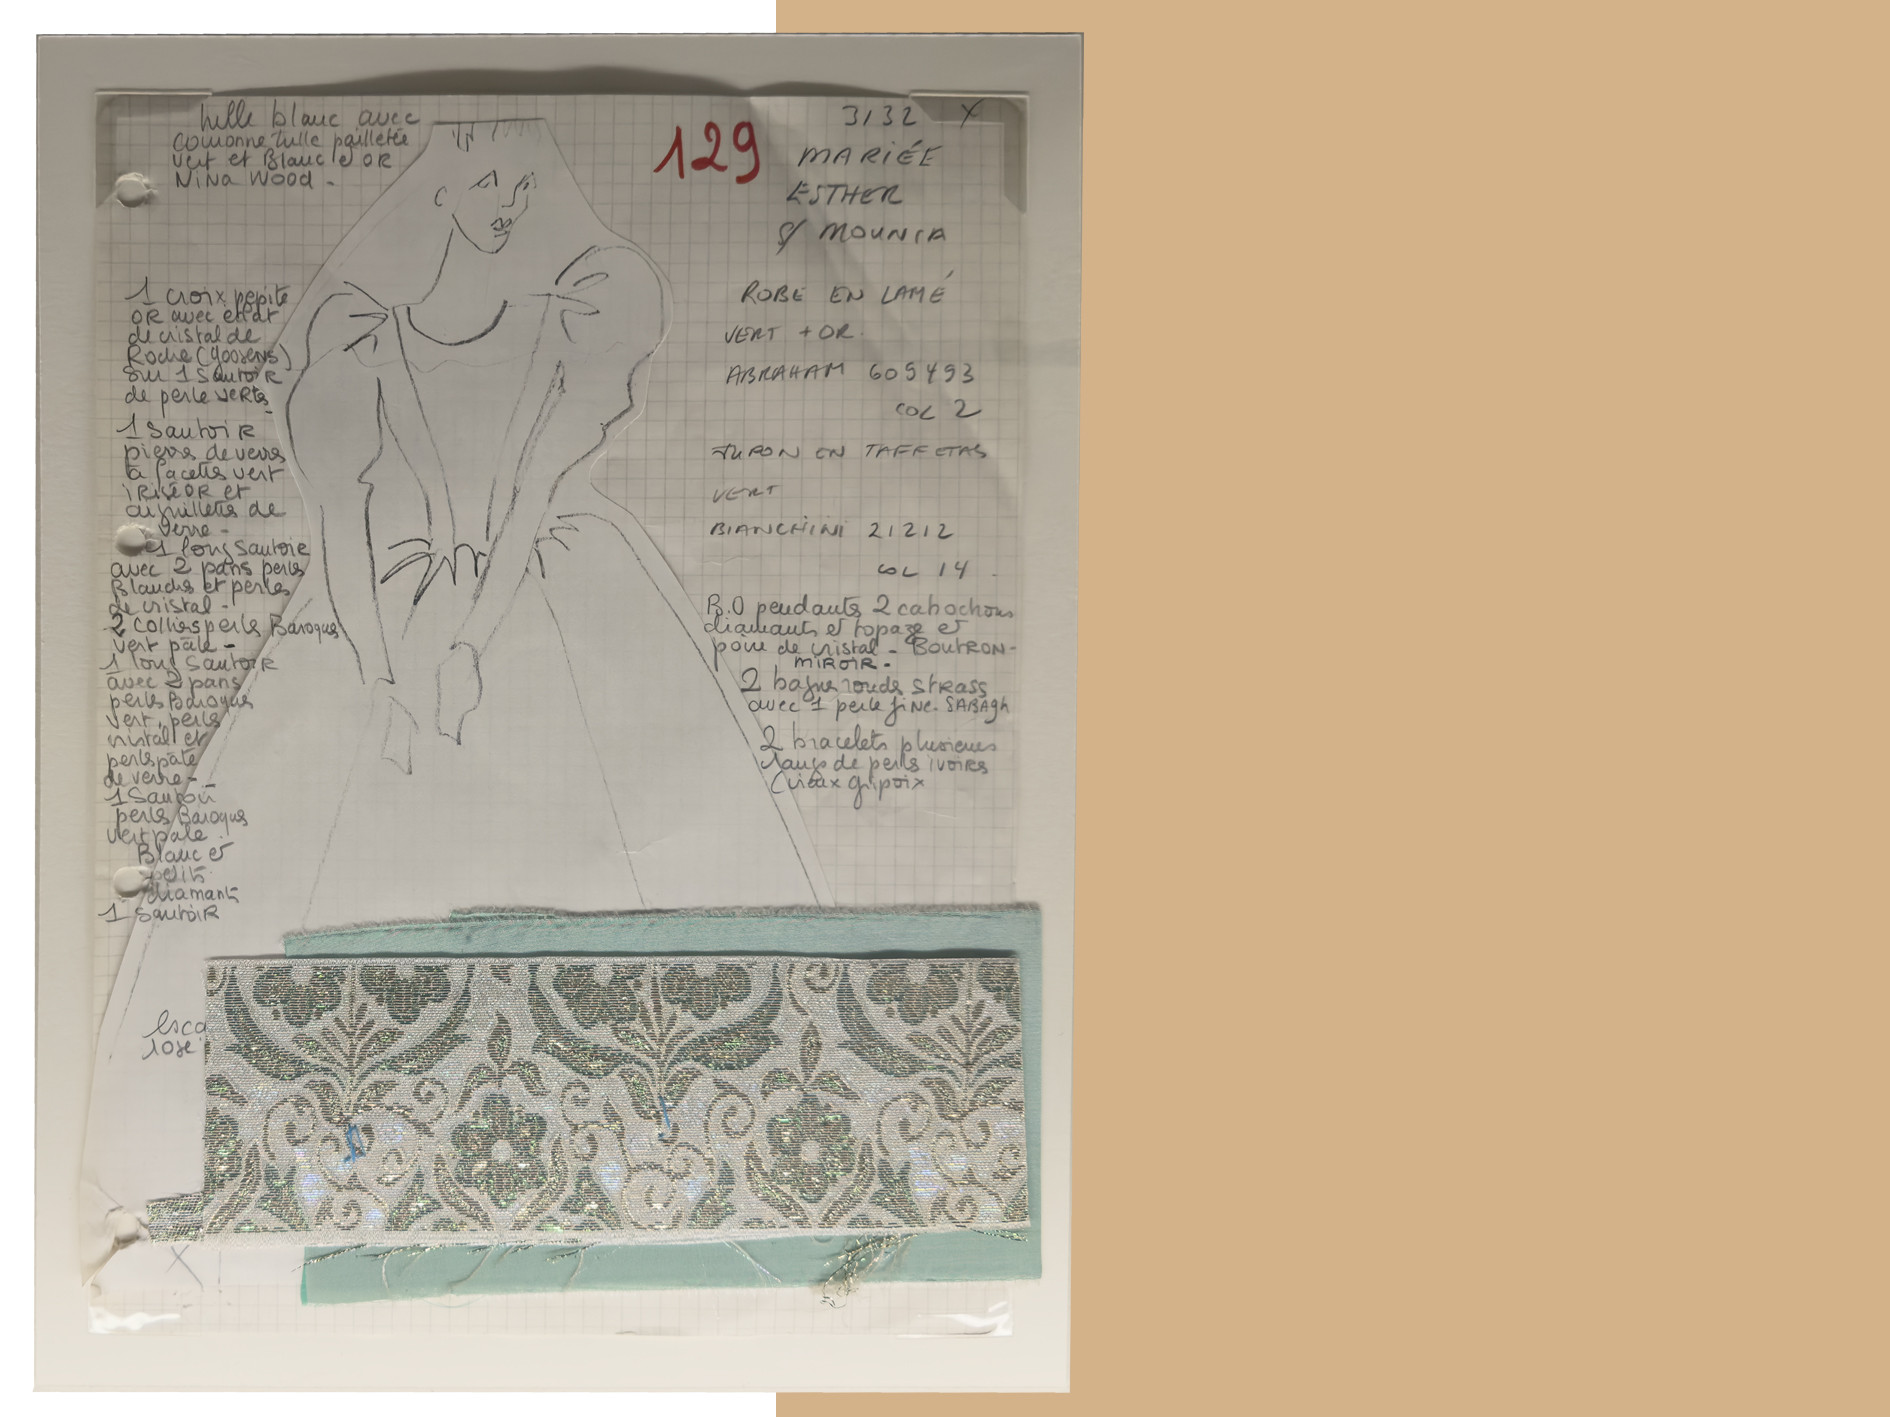 tulle blanc avec
couronne tulle pailletée
vert et Blanc et OR
NiNa Wood -
129
3132 X
MARIÉE
ESTHER
S/ MOUNIA
ROBE EN LAMÉ
VERT + OR.
ABRAHAM 609493
COL 2
JUPON EN TAFFETAS
VERT
BIANCHINI 21212
COL 14 -
B.O pendants 2 cabochons
diamants et topaze et
poire de cristal - BOUTRON-
MIROIR -
2 bagues ronds StRASS
avec 1 perle fiNe. SABAgh
2 bracelets plusieurs
rangs de perls ivoirs
(vieux gripoix
1 croix pepite
OR avec éclat
de cristal de
Roche (goosens)
Sur 1 SautoiR
de perle veRts
1 SautoiR
pierrs de verrs
à facetts vert
iRiséOR et
aiguilletts de
verre -
1 long Sautoir
avec 2 pans perls
Blanchs et perles
de cristal -
2 colliers perls Baroques
vert pâle -
1 long SautoiR
avec 2 pans
perls Baroques
vert, perls
cristal et
perls pâte
de verre -
1 Sautoir
perls Baroques
vert pale
Blanc et
petits
diamants
1 SautoiR
Esca
rose
X